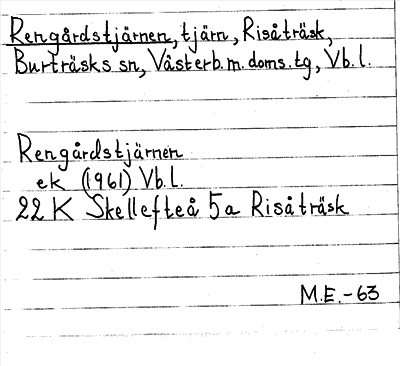 Rengårdstjärnen, tjärn, Risåträsk,
Burträsks sn, Västerb.m.doms.tg, Vb.l.
Rengårdstjärnen
ek (1961) Vb.l.
22 K Skellefteå 5a Risåträsk
M.E.-63